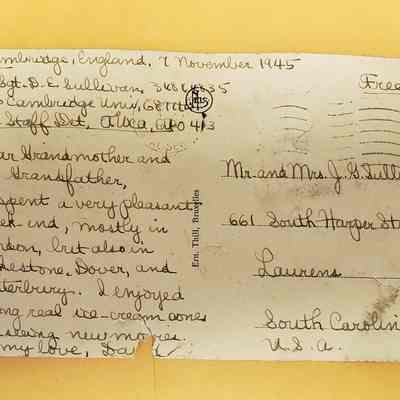 mbridge, England, 7 November 1945
Sgt. D. E. Sullivan,
Cambridge Univ,
Staff Det, APO 413
ar Grandmother and
Grandfather,
spent a very pleasant
ek-end, mostly in
ndon, but also in
kestone, Dover, and
terbury. I enjoyed
ong real ice-cream cones
seeing new movies.
my love, Da
Ern. Thill, Bruxelles
Free
Mr. and Mrs. J. G. Sulli
661 South Harper St
Laurens
South Carolin
U. S. A.